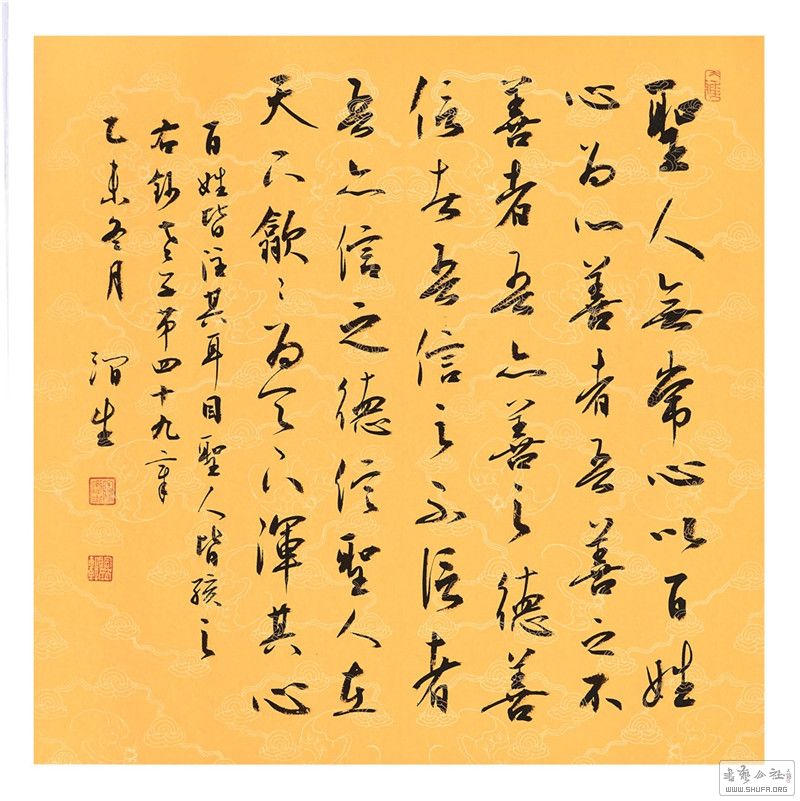 聖人無常心以百姓
心為心善者吾善之不
善者吾亦善之德善
信者吾信之不信者
吾亦信之德信聖人在
天下歙〻為天下渾其心
百姓皆注其耳目聖人皆孩之
右鈔老子第四十九章
乙未冬月
書藝公社
WWW.SHUFA.ORG